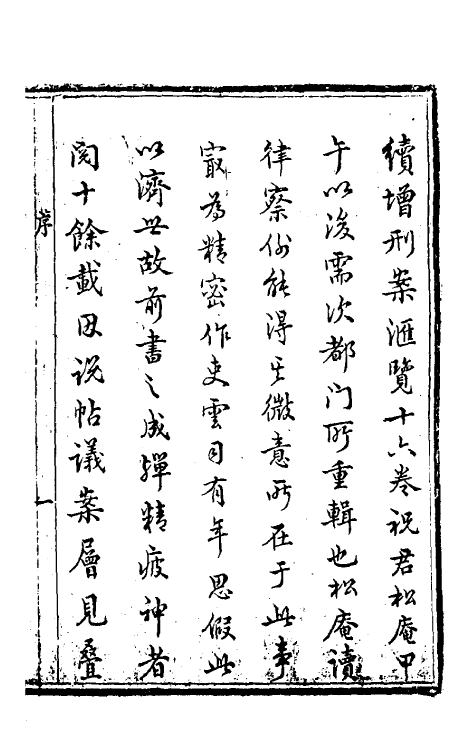 續增刑案滙覽十六卷祝君松庵甲
午以後需次都门所重輯也松庵讀
律察例能淂其微意所在于此事
㝡為精密作吏雲司有年思假此
以濟世故前書之成殫精疲神者
閱十餘載因説帖議案層見疊
序
一